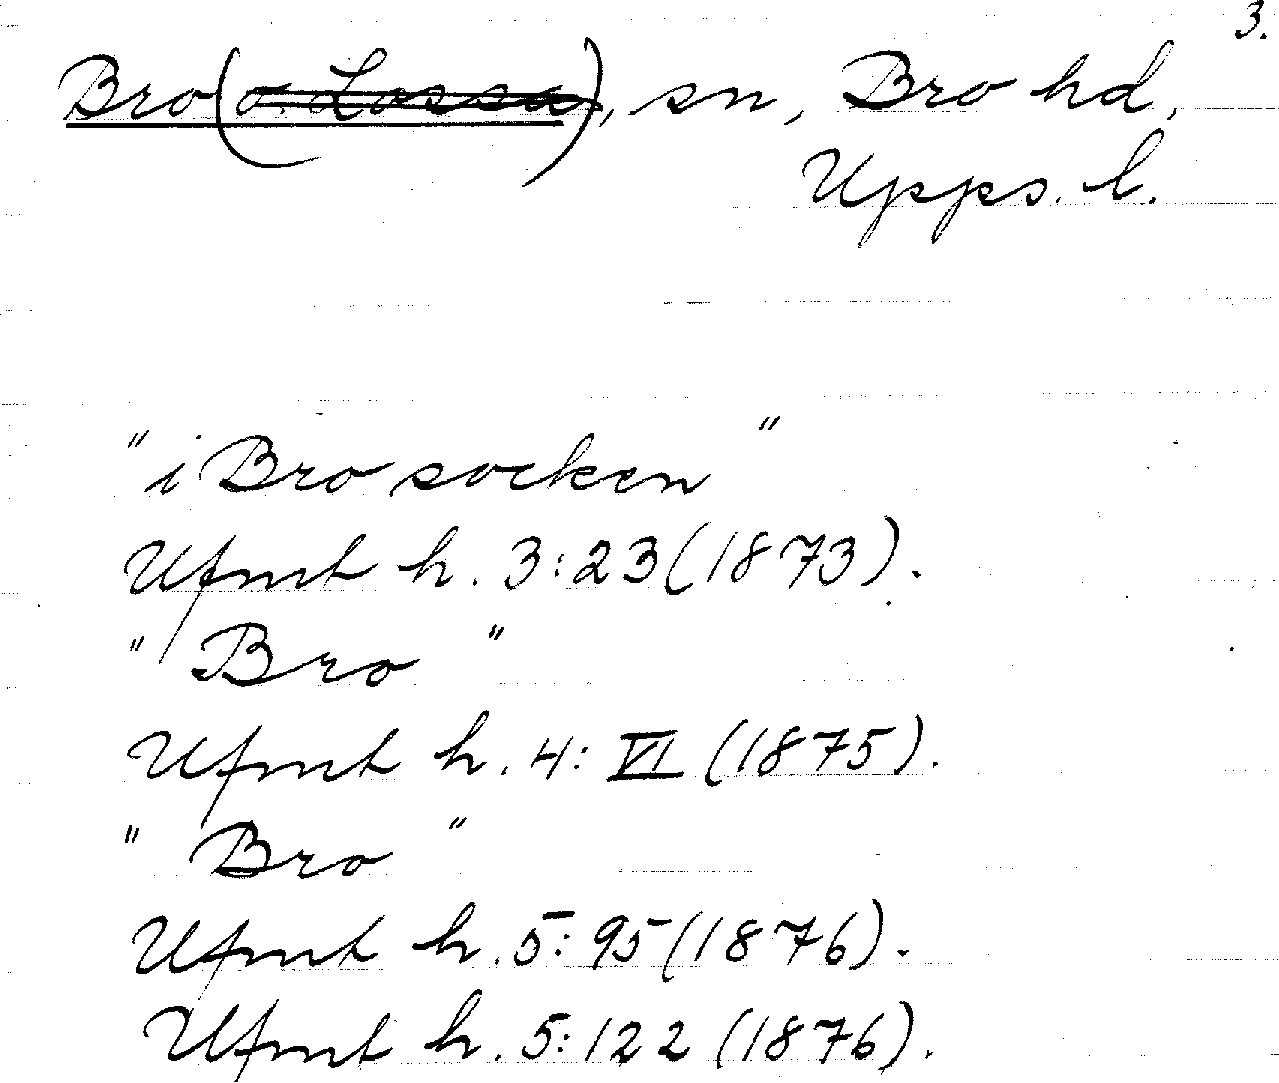 3.
Bro (o. Lossa), sn, Bro hd,
Upps. l.
"i Bro socken"
Ufmt h. 3:23 (1873).
"Bro"
Ufmt h. 4: VI (1875).
"Bro"
Ufmt h. 5: 95 (1876).
Ufmt h. 5: 122 (1876).